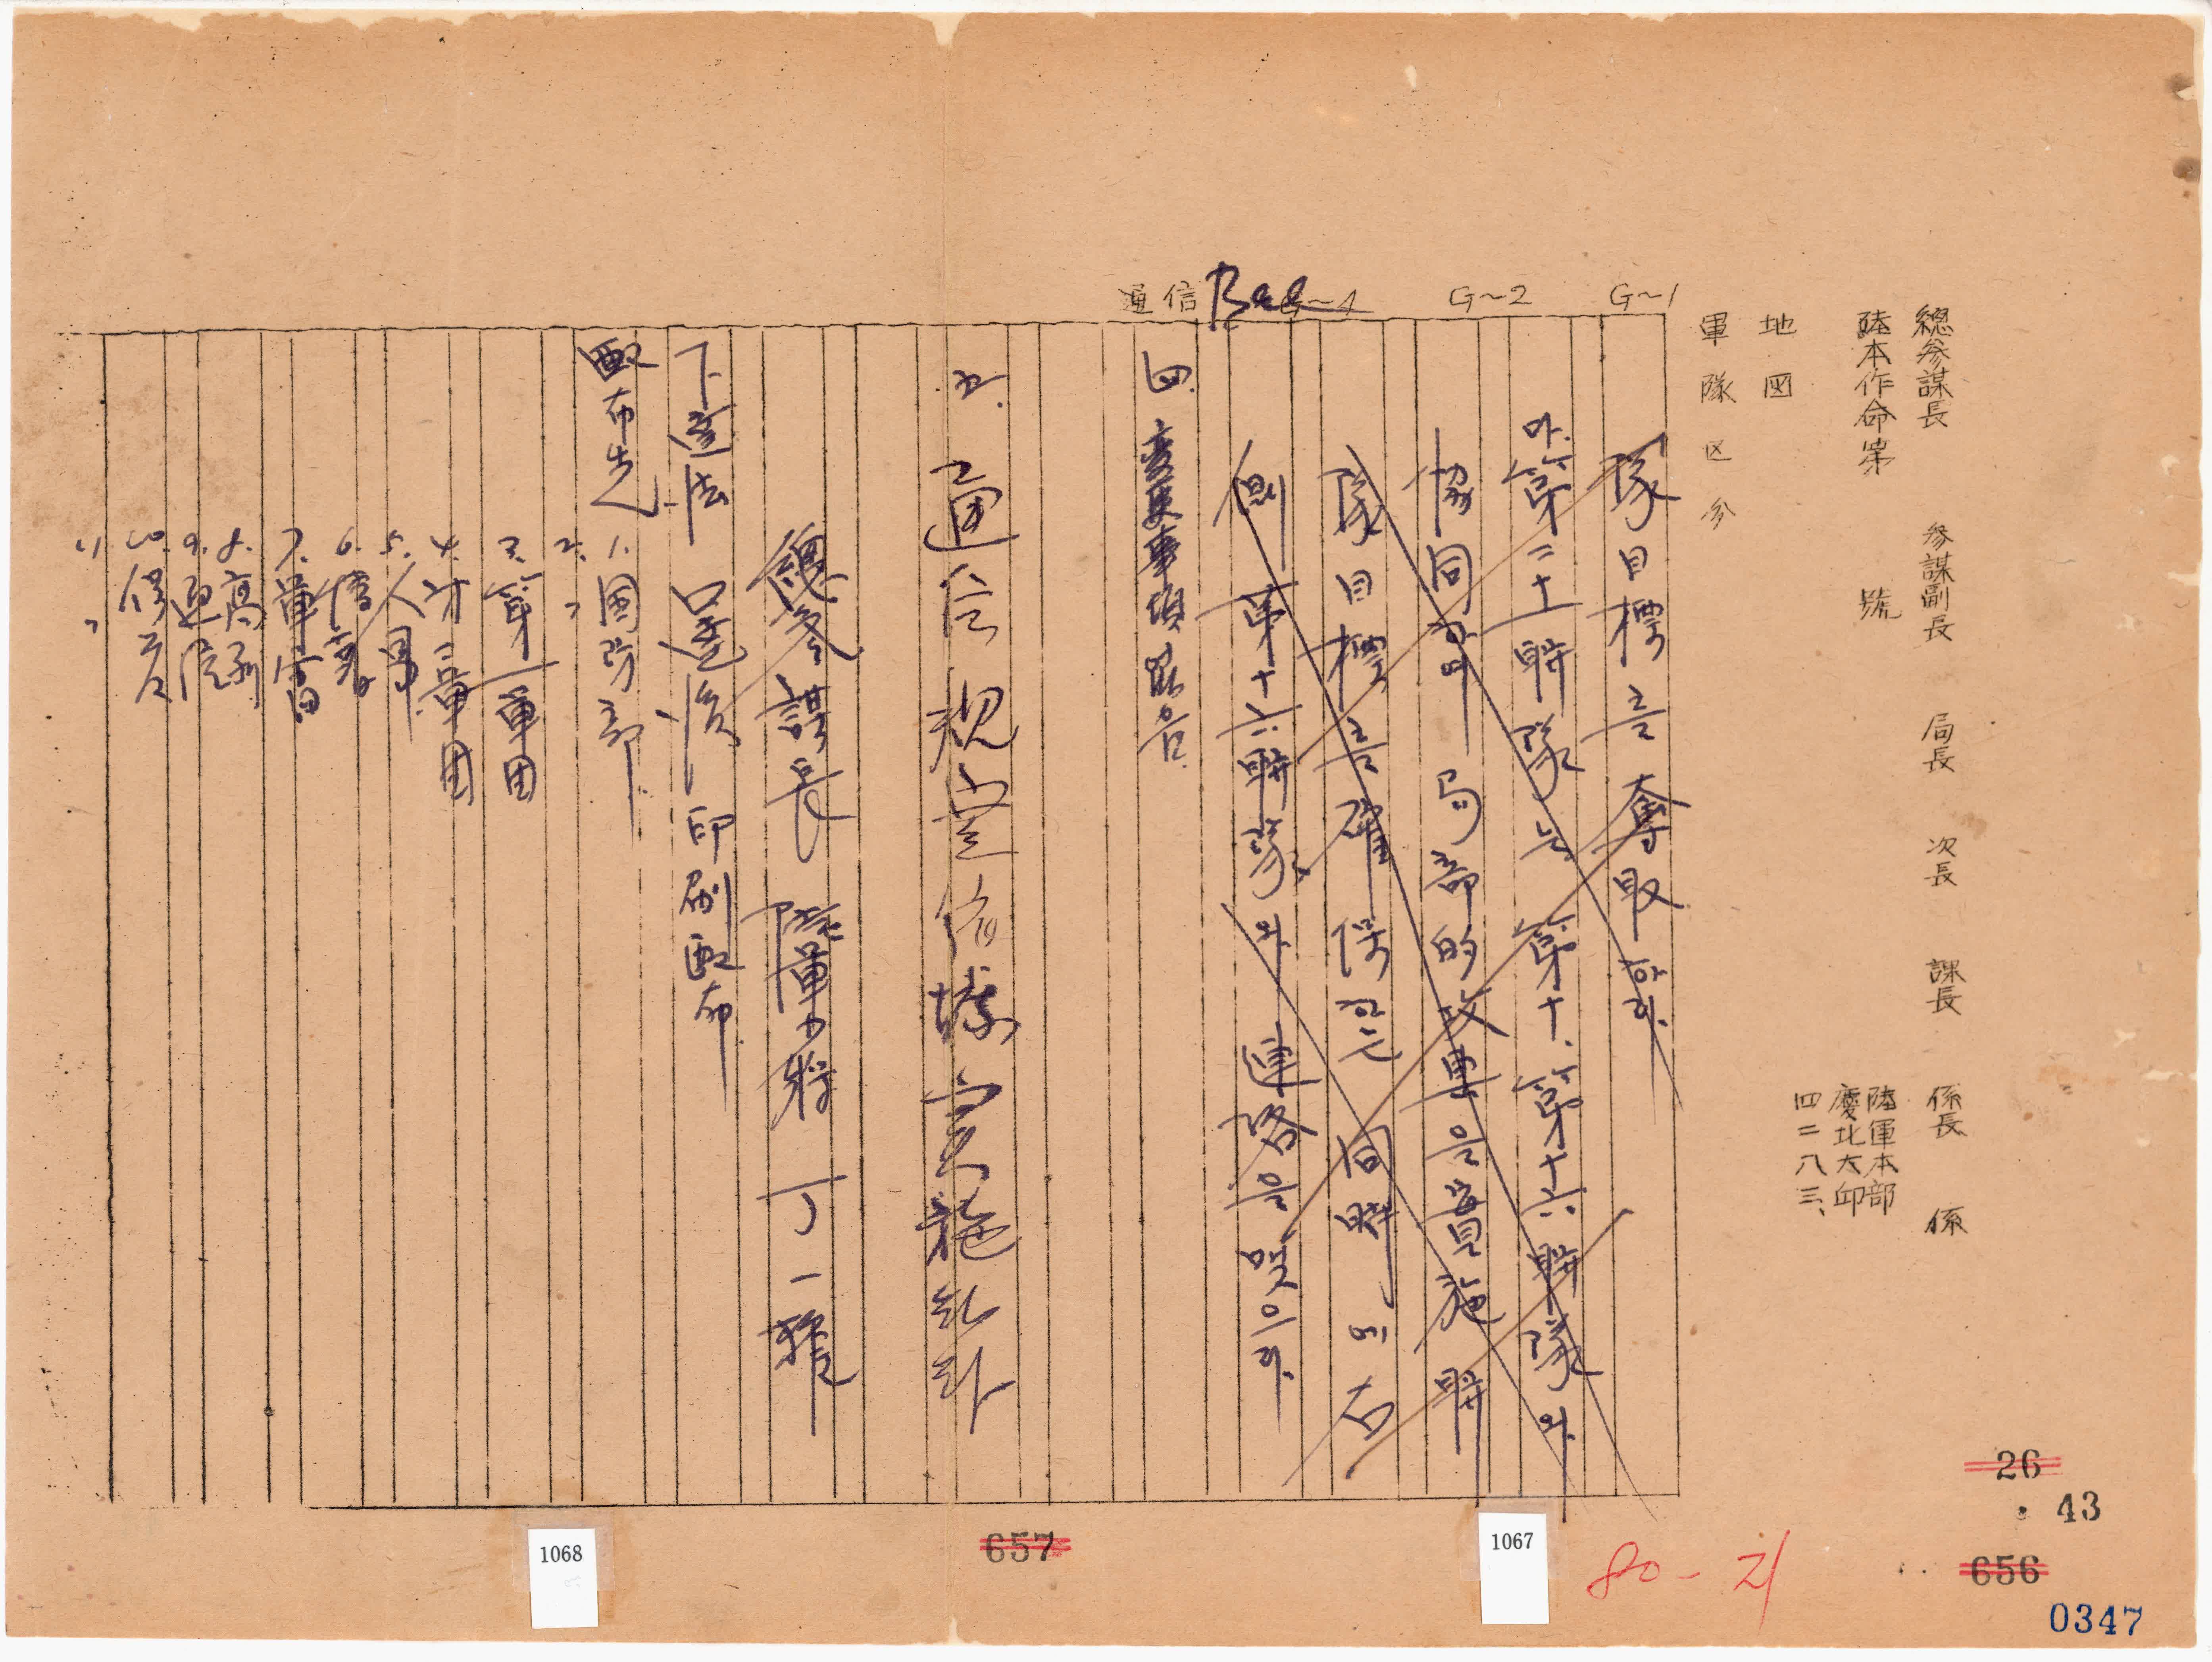 總參謀長 參謀副長 局長 次長 課長 係長 係
陸本作命第 號
陸軍本部
慶北大邱
四二八三、
地図
軍隊区分
G~1
G~2
G~4
通信
隊目標를 奪取하라.
마. 第二十一聯隊는 第十. 第十六聯隊와
協同하여 局部的攻東을 實施 聯
隊目標를 確保함과 同時에 右
側 第十六聯隊와 連絡을 맺으라.
四. 変更事項 없음.
五. 通信 規定依據 實施하라
總參謀長 陸軍少將 丁一權
下達法 口達後 印刷配布
配布先 1. 國防部
2. 〃
3. 第一軍団
4. 第二軍団
5. 人事
6. 情報
7. 軍需
8. 高級
9. 通信
10.
11. 〃
26
43
656
657
1067
1068
80-21
0347